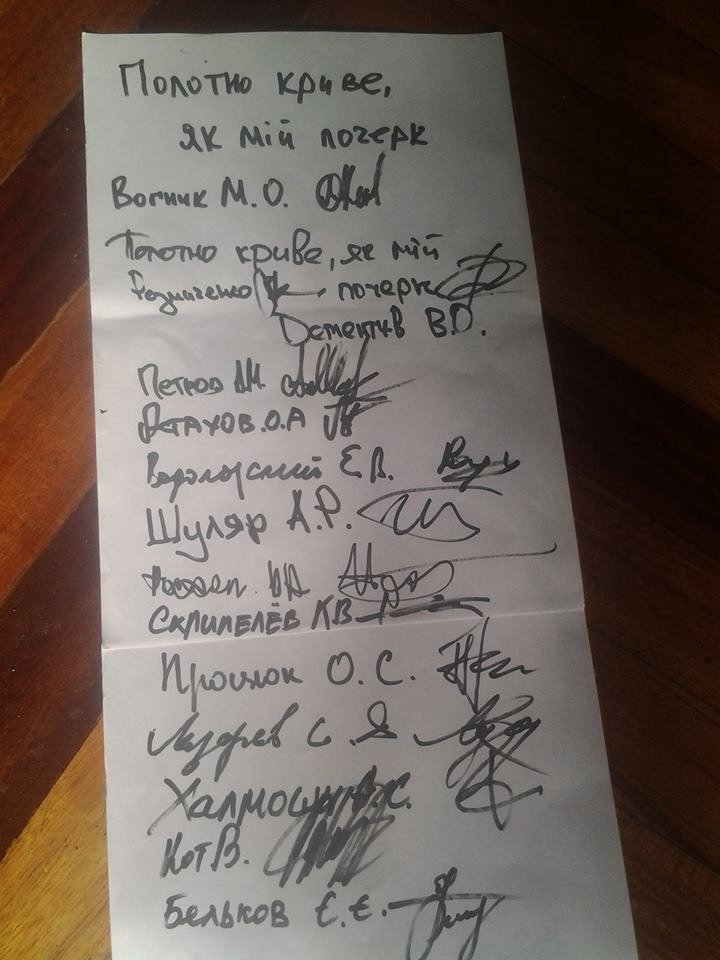 Полотно криве,
як мій почерк
Вогник М.О.
Полотно криве, як мій
Резніченко почерк
Дементьєв В.О.
Петков А.М.
Астахов.О.А
Е.В.
Шуляр А.Р.
Скрипелёв КВ
О.С.
Лазарев С.Я
Кот В.
Бельков Є.Є.